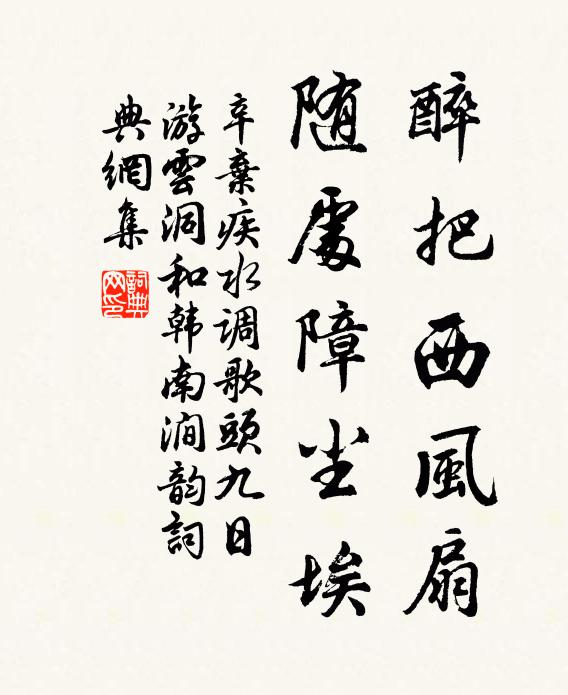 醉把西風扇
随處障尘埃
辛棄疾水调歌頭九日
游雲洞和韩南澗韵詞
典網集
詞典網印